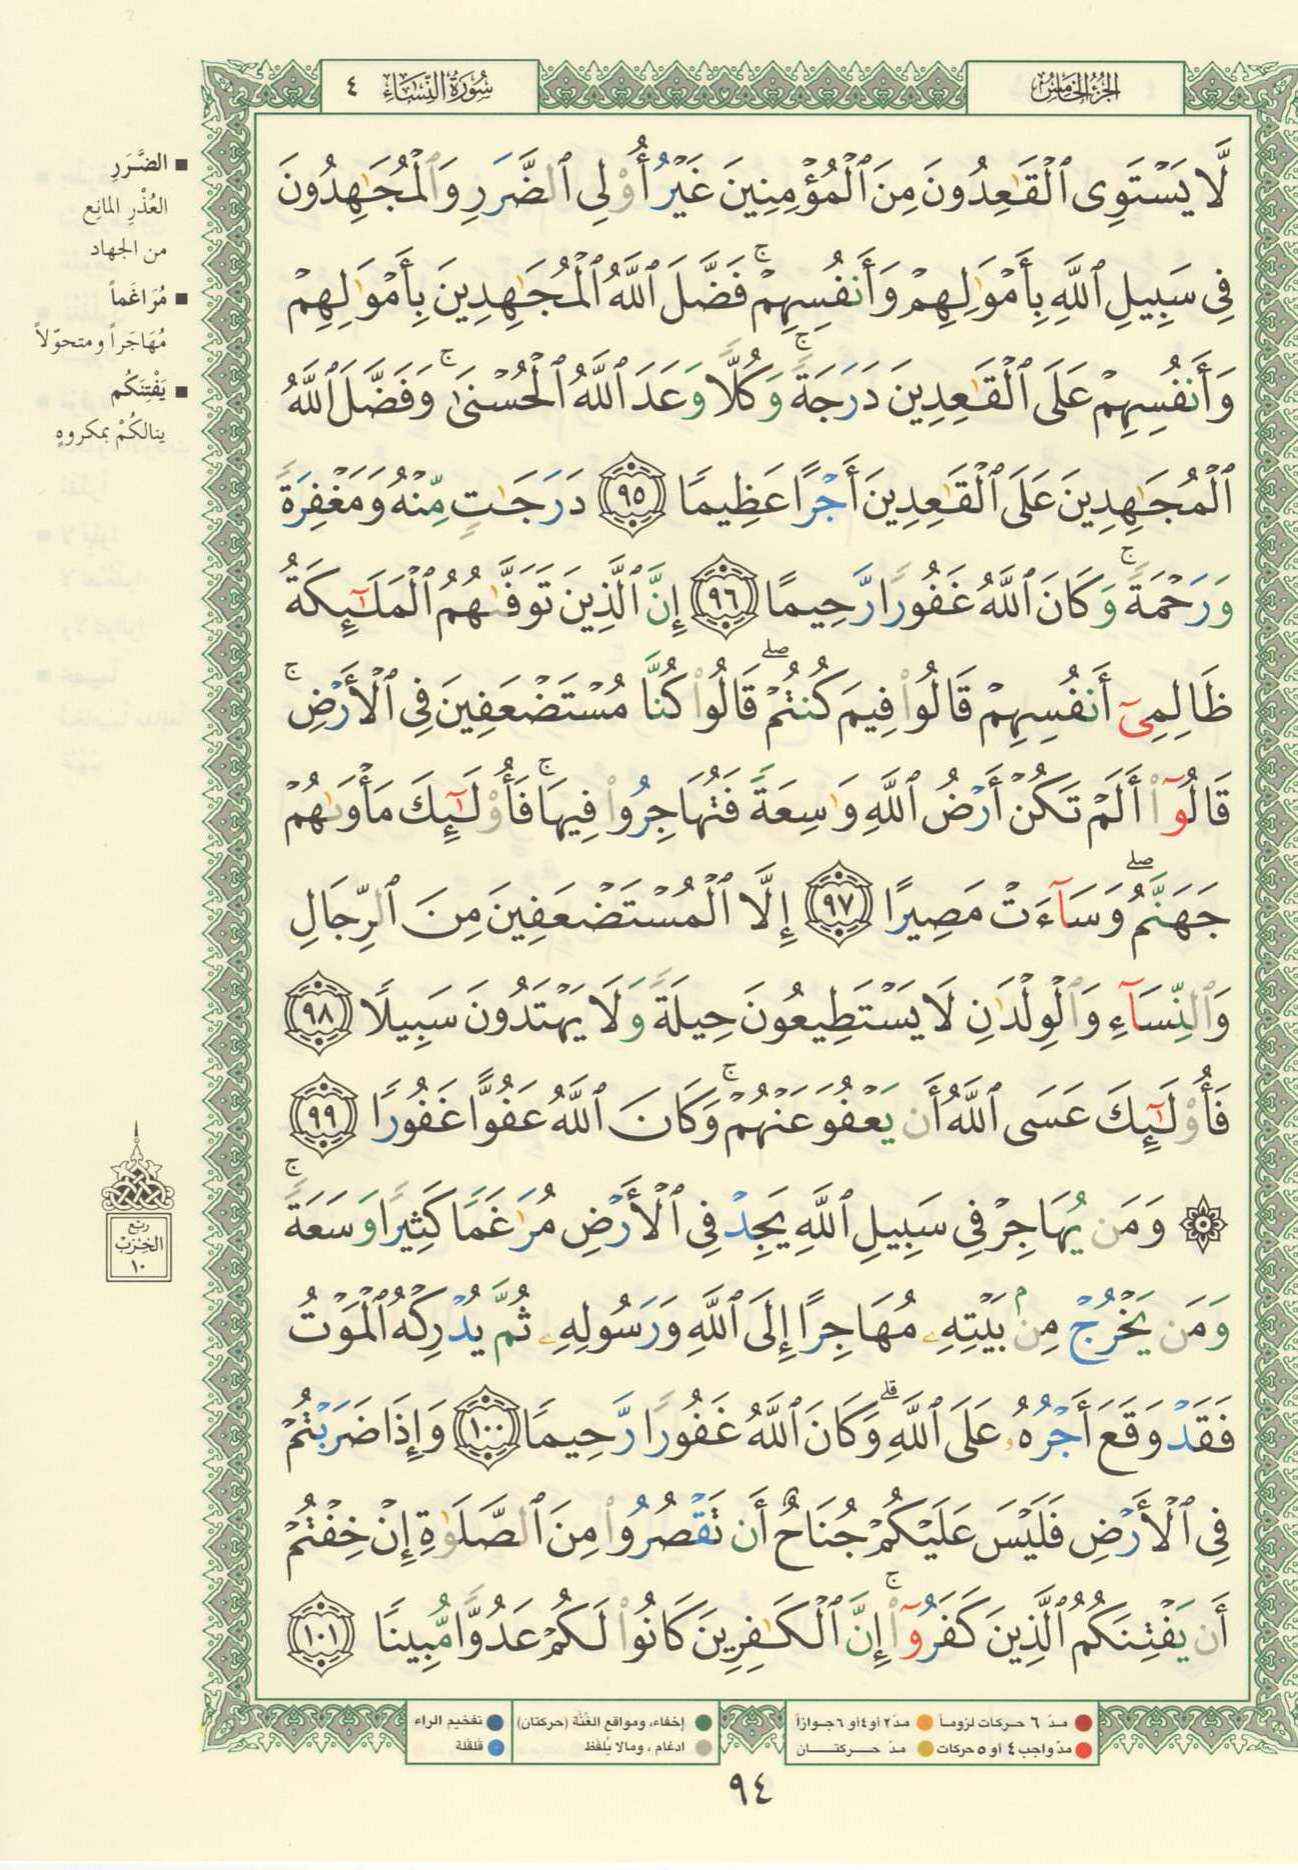 الجزء الخامس
سورة النساء ٤
لَّا يَسْتَوِى ٱلْقَـٰعِدُونَ مِنَ ٱلْمُؤْمِنِينَ غَيْرُ أُو۟لِى ٱلضَّرَرِ وَٱلْمُجَـٰهِدُونَ
فِى سَبِيلِ ٱللَّهِ بِأَمْوَٰلِهِمْ وَأَنفُسِهِمْ ۚ فَضَّلَ ٱللَّهُ ٱلْمُجَـٰهِدِينَ بِأَمْوَٰلِهِمْ
وَأَنفُسِهِمْ عَلَى ٱلْقَـٰعِدِينَ دَرَجَةً ۚ وَكُلًّا وَعَدَ ٱللَّهُ ٱلْحُسْنَىٰ ۚ وَفَضَّلَ ٱللَّهُ
ٱلْمُجَـٰهِدِينَ عَلَى ٱلْقَـٰعِدِينَ أَجْرًا عَظِيمًا ٩٥ دَرَجَـٰتٍ مِّنْهُ وَمَغْفِرَةً
وَرَحْمَةً ۚ وَكَانَ ٱللَّهُ غَفُورًا رَّحِيمًا ٩٦ إِنَّ ٱلَّذِينَ تَوَفَّىٰهُمُ ٱلْمَلَـٰٓئِكَةُ
ظَالِمِىٓ أَنفُسِهِمْ قَالُوا۟ فِيمَ كُنتُمْ ۖ قَالُوا۟ كُنَّا مُسْتَضْعَفِينَ فِى ٱلْأَرْضِ ۚ
قَالُوٓا۟ أَلَمْ تَكُنْ أَرْضُ ٱللَّهِ وَٰسِعَةً فَتُهَاجِرُوا۟ فِيهَا ۚ فَأُو۟لَـٰٓئِكَ مَأْوَىٰهُمْ
جَهَنَّمُ ۖ وَسَآءَتْ مَصِيرًا ٩٧ إِلَّا ٱلْمُسْتَضْعَفِينَ مِنَ ٱلرِّجَالِ
وَٱلنِّسَآءِ وَٱلْوِلْدَٰنِ لَا يَسْتَطِيعُونَ حِيلَةً وَلَا يَهْتَدُونَ سَبِيلًا ٩٨
فَأُو۟لَـٰٓئِكَ عَسَى ٱللَّهُ أَن يَعْفُوَ عَنْهُمْ ۚ وَكَانَ ٱللَّهُ عَفُوًّا غَفُورًا ٩٩
۞ وَمَن يُهَاجِرْ فِى سَبِيلِ ٱللَّهِ يَجِدْ فِى ٱلْأَرْضِ مُرَٰغَمًا كَثِيرًا وَسَعَةً ۚ
وَمَن يَخْرُجْ مِنۢ بَيْتِهِۦ مُهَاجِرًا إِلَى ٱللَّهِ وَرَسُولِهِۦ ثُمَّ يُدْرِكْهُ ٱلْمَوْتُ
فَقَدْ وَقَعَ أَجْرُهُۥ عَلَى ٱللَّهِ ۗ وَكَانَ ٱللَّهُ غَفُورًا رَّحِيمًا ١٠٠ وَإِذَا ضَرَبْتُمْ
فِى ٱلْأَرْضِ فَلَيْسَ عَلَيْكُمْ جُنَاحٌ أَن تَقْصُرُوا۟ مِنَ ٱلصَّلَوٰةِ إِنْ خِفْتُمْ
أَن يَفْتِنَكُمُ ٱلَّذِينَ كَفَرُوٓا۟ ۚ إِنَّ ٱلْكَـٰفِرِينَ كَانُوا۟ لَكُمْ عَدُوًّا مُّبِينًا ١٠١
■ الضَّرَرِ
العُذْرِ المانِع
من الجهاد
■ مُرَاغَماً
مُهَاجَراً ومتحوّلاً
■ يَفْتِنَكُم
ينالكُمْ بمكروهٍ
ربع
الحزب
١٠
مدّ ٦ حركات لزوماً مدّ٢ أو٤أو ٦جوازاً
مدّ واجب٤ أو ٥ حركات مدّ حـركتـان
إخفاء، ومواقع الغُنَّة (حركتان) تفخيم الراء
ادغام ، ومالا يُلفَظ قلقلة
٩٤